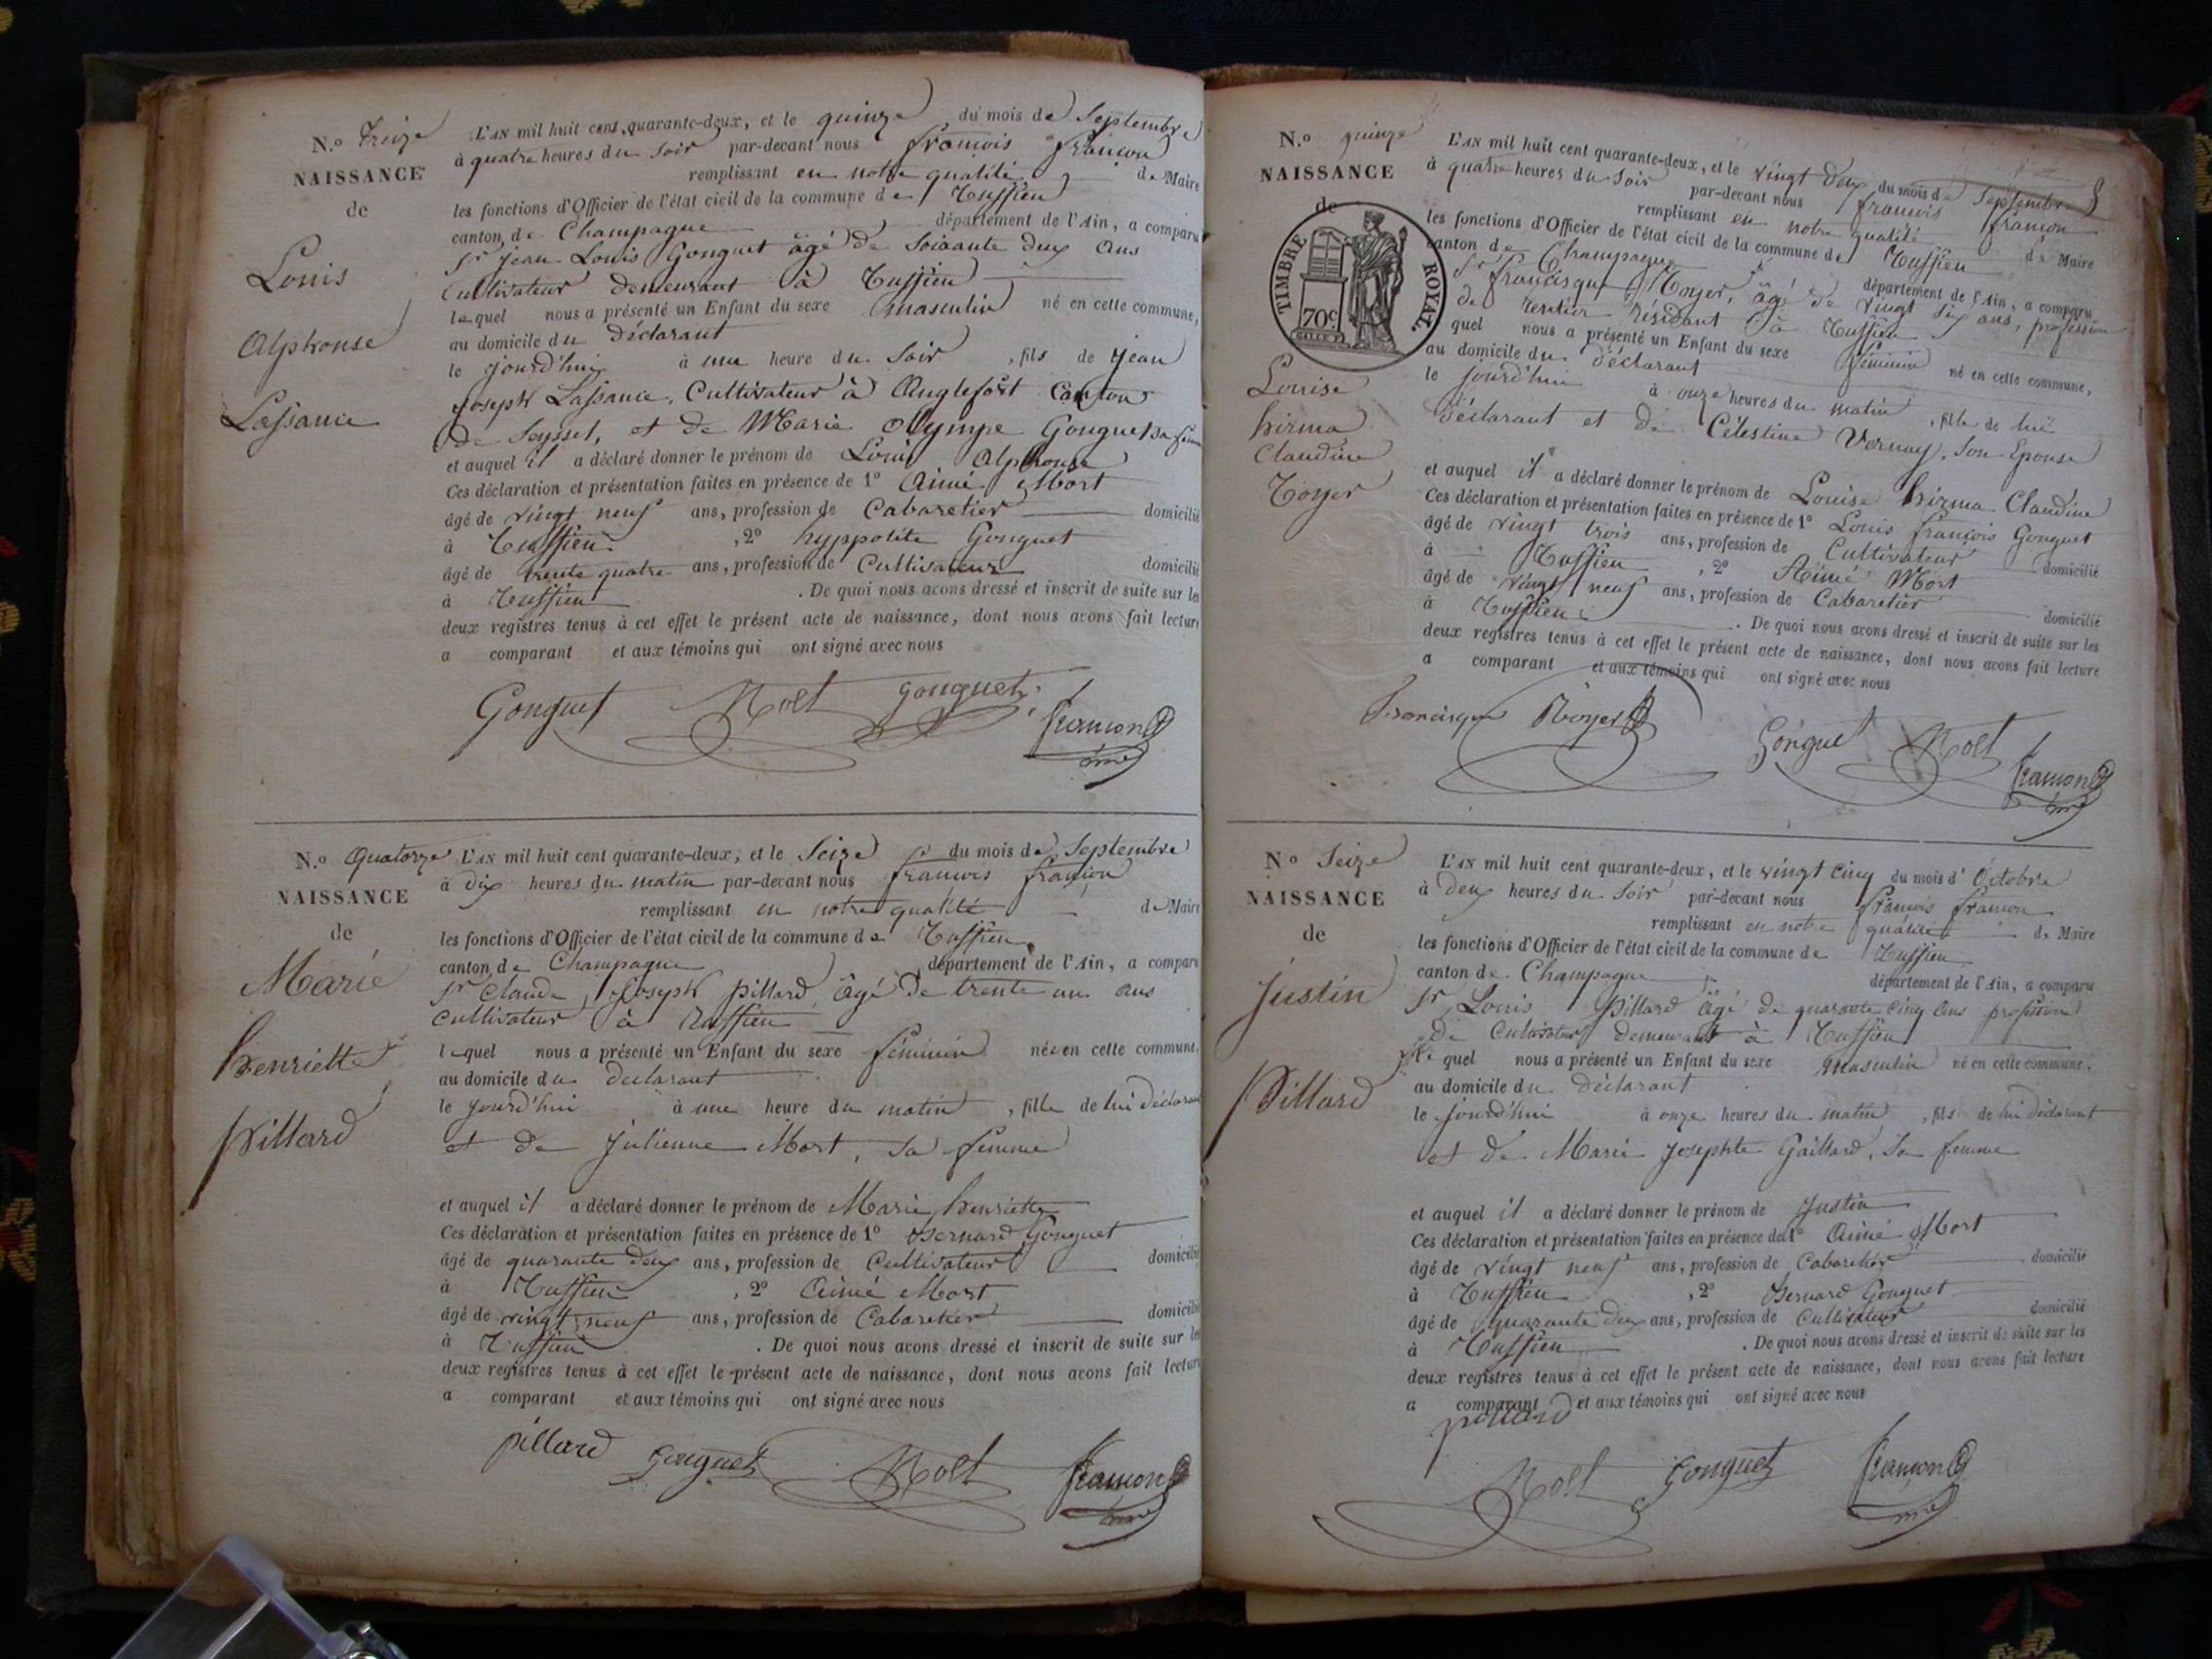 N.º Treize
NAISSANCE
de
Louis
Alphonse
Lassauce
L'AN mil huit cent quarante-deux, et le quinze du mois de Septembre
à quatre heures du soir par-devant nous françois françon
remplissant en notre qualité de Maire
les fonctions d'Officier de l'état civil de la commune de
canton de Champagne département de l'Ain, a comparu
Sr jean Louis Gonguet âgé de soixante deux ans
Cultivateur demeurant à
lequel nous a présenté un Enfant du sexe masculin né en cette commune,
au domicile du déclarant
le jourd'hui à une heure du soir, fils de jean
joseph Lassauce, Cultivateur à Anglefort Canton
de Seyssel, et de Marie Olympe Gonguet sa femme
et auquel il a déclaré donner le prénom de Louis Alphonse
Ces déclaration et présentation faites en présence de 1º Aimé Mort
âgé de vingt neuf ans, profession de Cabaretier domicilié
à , 2º hyppolite Gonguet
âgé de trente quatre ans, profession de Cultivateur domicilié
à . De quoi nous avons dressé et inscrit de suite sur les
deux registres tenus à cet effet le présent acte de naissance, dont nous avons fait lecture
a comparant et aux témoins qui ont signé avec nous
Gonguet Mort gonguet
françon
N.º Quatorze
NAISSANCE
de
Marie
henriette
Pillard
L'AN mil huit cent quarante-deux, et le Seize du mois de Septembre
à dix heures du matin par-devant nous françois françon
remplissant en notre qualité de Maire
les fonctions d'Officier de l'état civil de la commune de
canton de Champagne département de l'Ain, a comparu
Sr Claude, joseph pillard âgé de trente un ans
Cultivateur à
lequel nous a présenté un Enfant du sexe féminin née en cette commune,
au domicile du declarant
le jourd'hui à une heure du matin, fille de lui déclarant
et de julienne Mort, sa femme
et auquel il a déclaré donner le prénom de Marie henriette
Ces déclaration et présentation faites en présence de 1º Bernard Gonguet
âgé de quarante deux ans, profession de Cultivateur domicilié
à , 2º Aimé Mort
âgé de vingt neuf ans, profession de Cabaretier domicilié
à . De quoi nous avons dressé et inscrit de suite sur les
deux registres tenus à cet effet le présent acte de naissance, dont nous avons fait lecture
a comparant et aux témoins qui ont signé avec nous
pillard gonguet Mort françon
N.º quinze
NAISSANCE
de
TIMBRE ROYAL.
70c
Louise
hirma
Claudine
L'AN mil huit cent quarante-deux, et le vingt deux du mois de Septembre
à quatre heures du soir par-devant nous françois françon
remplissant en notre qualité de Maire
les fonctions d'Officier de l'état civil de la commune de
canton de Champagne département de l'Ain, a comparu
Sr francisque , âgé de vingt six ans, profession
de rentier résidant à
quel nous a présenté un Enfant du sexe féminin né en cette commune,
au domicile du déclarant
le jourd'hui à onze heures du matin, fille de lui
déclarant et de Célestine Vernay, son Epouse
et auquel il a déclaré donner le prénom de Louise hirma Claudine
Ces déclaration et présentation faites en présence de 1º Louis françois Gonguet
âgé de vingt trois ans, profession de Cultivateur domicilié
à , 2º Aimé Mort
âgé de vingt neuf ans, profession de Cabaretier domicilié
à . De quoi nous avons dressé et inscrit de suite sur les
deux registres tenus à cet effet le présent acte de naissance, dont nous avons fait lecture
a comparant et aux témoins qui ont signé avec nous
Francisque
Gonguet Mort françon
Nº Seize
NAISSANCE
de
justin
Pillard
L'AN mil huit cent quarante-deux, et le vingt cinq du mois d'Octobre
à deux heures du soir par-devant nous françois françon
remplissant en notre qualité de Maire
les fonctions d'Officier de l'état civil de la commune de
canton de Champagne département de l'Ain, a comparu
Sr Louis pillard âgé de quarante cinq ans profession
de Cultivateur demeurant à
le quel nous a présenté un Enfant du sexe masculin né en cette commune,
au domicile du déclarant
le jourd'hui à onze heures du matin, fils de lui déclarant
et de Marie josephte Gaillard, sa femme
et auquel il a déclaré donner le prénom de Justin
Ces déclaration et présentation faites en présence de 1º Aimé Mort
âgé de vingt neuf ans, profession de Cabaretier domicilié
à , 2º Bernard Gonguet
âgé de quarante deux ans, profession de Cultivateur domicilié
à . De quoi nous avons dressé et inscrit de suite sur les
deux registres tenus à cet effet le présent acte de naissance, dont nous avons fait lecture
a comparant et aux témoins qui ont signé avec nous
pillard
Mort gonguet françon